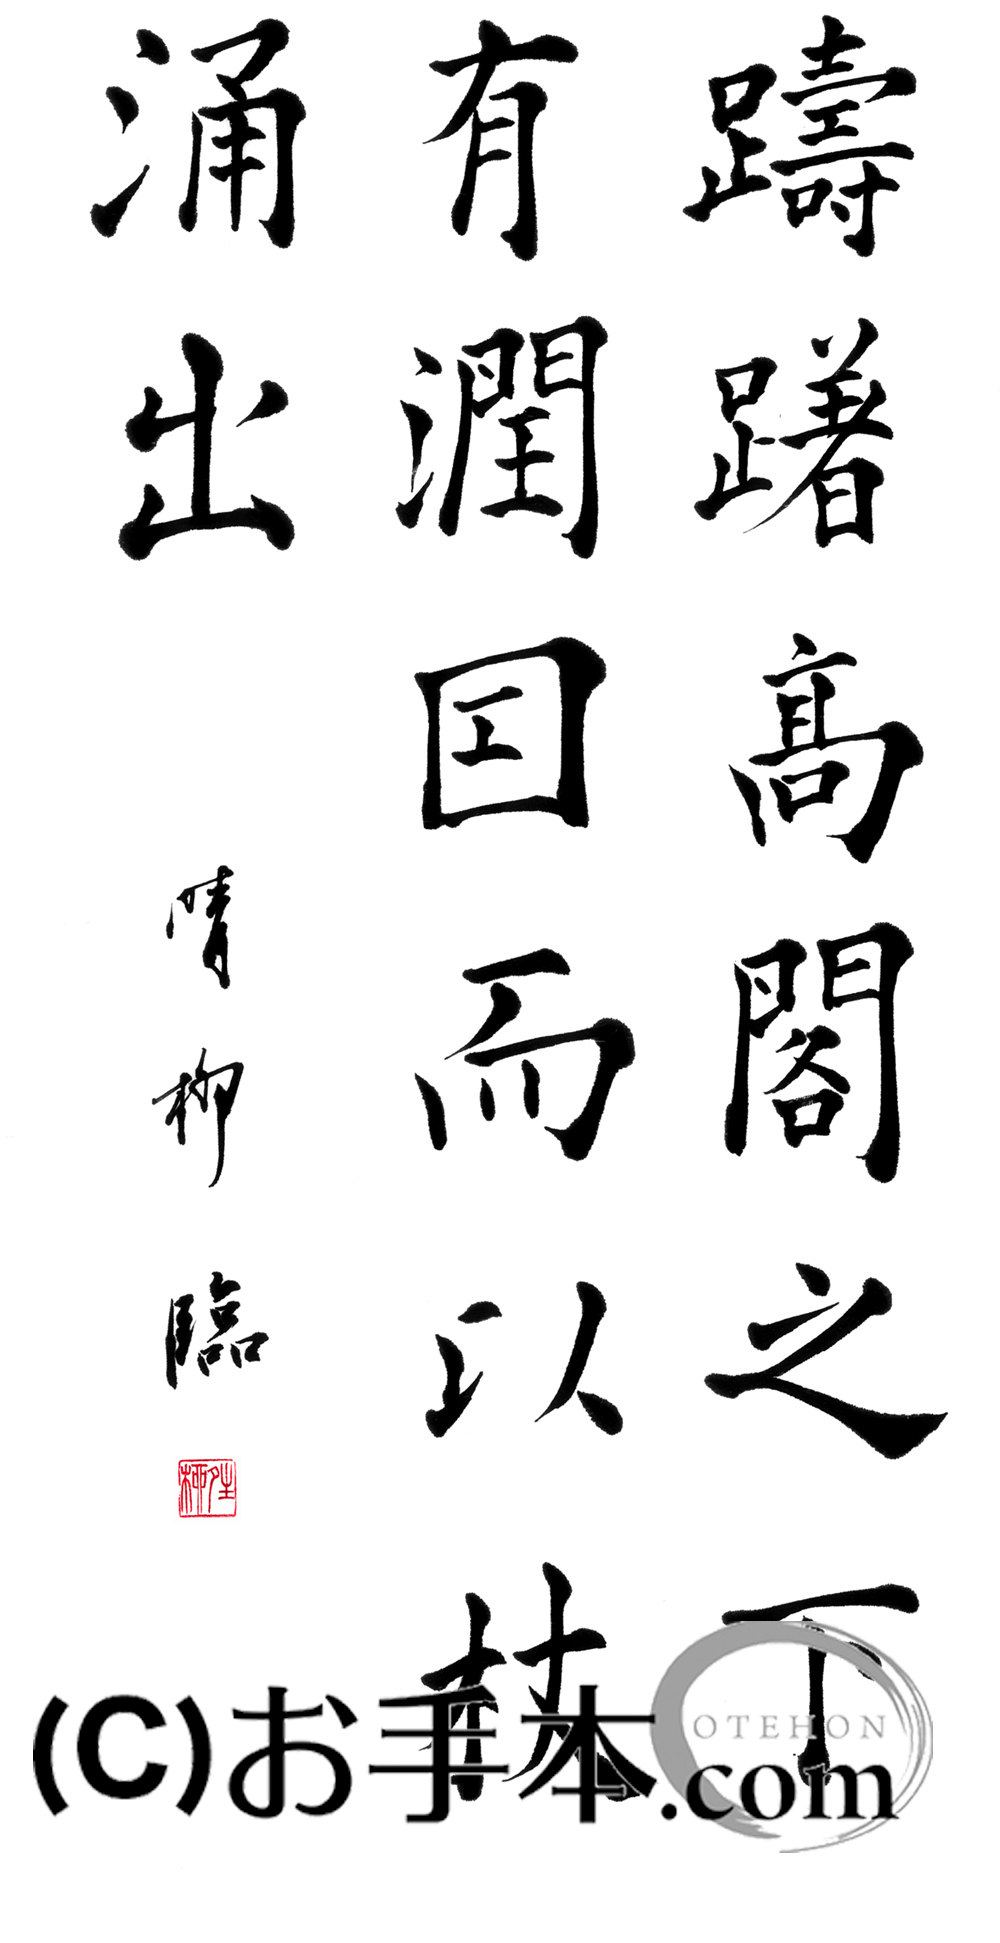 躊躇高閣之下
有潤囙而以杖
涌出
晴柳臨
(C)お手本.com
OTEHON